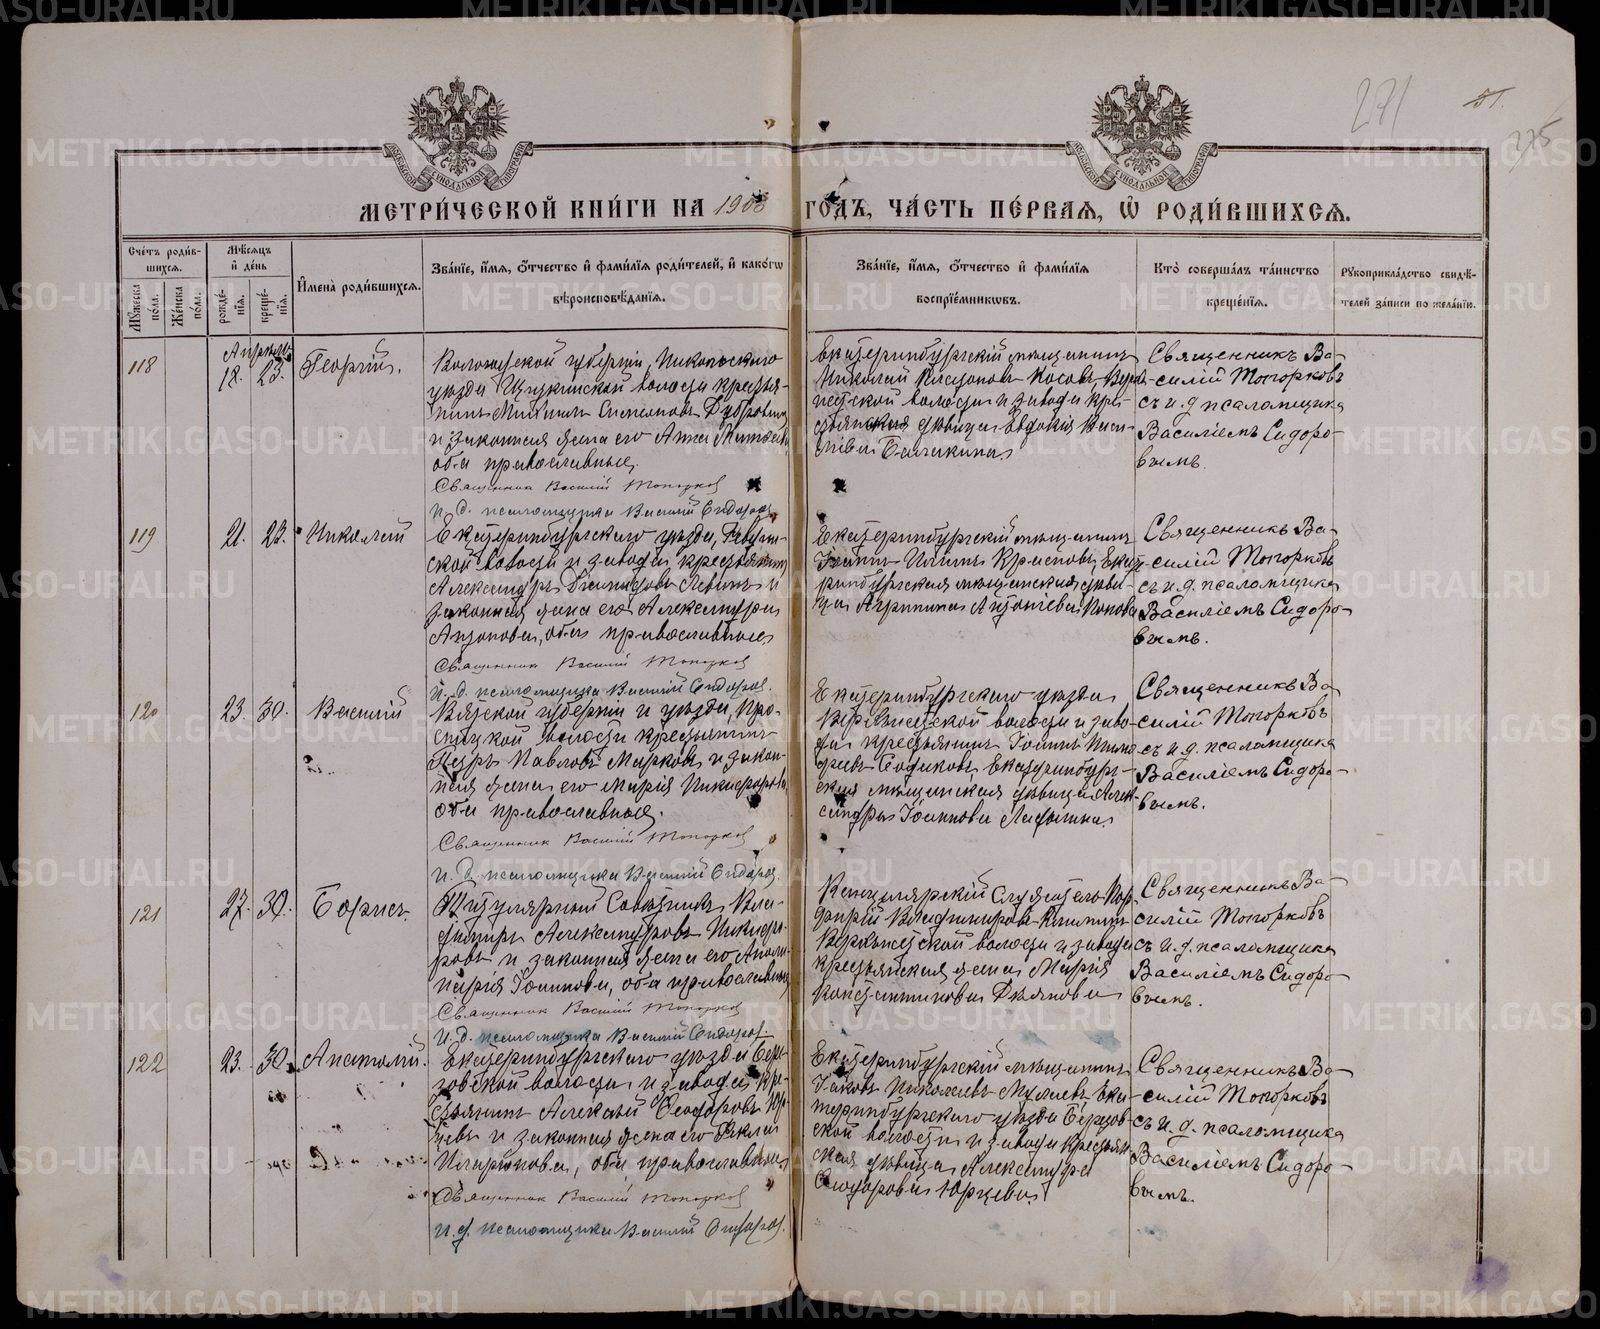 271
51.
275
МЕТРИ́ЧЕСКОЙ КНИ́ГИ НА 1908 ГО́ДЪ, ЧА́СТЬ ПЕ́РВАЯ, Ѡ РОДИ́ВШИХСЯ.
Сче́тъ роди́в-
шихся.
Мѣ́сяцъ
и де́нь
Мꙋ́жеска по́ла.
Же́нска по́ла.
рожде́-
нїя.
креще́-
нїя.
И҆мена̀ роди́вшихся.
Зва́нїе, и҆́мя, ѻ҆́тчество и҆ фами́лїя роди́телей, и҆ како́гѡ
вѣроисповѣ́данїя.
Зва́нїе, и҆́мя, ѻ҆́тчество и҆ фами́лїя
воспрїе́мникѡвъ.
Кто̀ соверша́лъ та́инство
креще́нїя.
Рꙋкоприкла́дство свидѣ́-
телей за́писи по жела́нїю.
118
Апрѣль
18. 23.
Георгій.
Вологодской губерніи, Никольскаго
уѣзда Щеткинской волости крестья-
нинъ Михаилъ Симеоновъ Дубровинъ
и законная жена его Анна
оба православные.
Священникъ Василій Топорков
И. д. псаломщика Василій Сидоров
Екатеринбургскій мѣщанинъ
Николай Платоновъ Косовъ, Верхъ-
исетской волости и завода кре-
стьянская дѣвица Евдокія Васи-
ліева Балакина.
Священникъ Ва-
силій Топорковъ
съ и. д. псаломщика
Василіемъ Сидоро-
вымъ.
119
21. 23.
Николай
Екатеринбургскаго уѣзда, Ревдин-
ской волости и завода, крестьянинъ
Александръ Давидовъ Левинъ и
законная жена его Александра
оба православные
Священникъ Василій Топорков
И. д. псаломщика Василій Сидоров.
Екатеринбургскій мѣщанинъ
Іоаннъ Ильинъ Красновъ, Екате-
ринбургская мѣщанская дѣви-
ца Агриппина Антоніева Попова
Священникъ Ва-
силій Топорковъ
съ и. д. псаломщика
Василіемъ Сидоро-
вымъ.
120
23. 30.
Василій
Вятской губерніи и уѣзда, Про-
сницкой волости крестьянинъ
Петръ Павловъ Марковъ и закон-
ная жена его Марія Никифорова,
оба православные.
Священникъ Василій Топорков
И. д. псаломщика Василій Сидоров.
Екатеринбургскаго уѣзда
Верхъисетской волости и заво-
да крестьянинъ Іоаннъ
Екатеринбург-
ская мѣщанская дѣвица Алек-
сандра Іоаннова
Священникъ Ва-
силій Топорковъ
съ и. д. псаломщика
Василіемъ Сидоро-
вымъ.
121
27. 30.
Борисъ.
Титулярный Совѣтникъ Вла-
диміръ Александровъ Никифо-
ровъ и законная жена его Аполи-
нарія Іоаннова, оба православные
Священникъ Василій Топорков
И. д. псаломщика Василій Сидоров.
Канцелярскій Служитель Пор-
фирій Владиміровъ
Верхъисетской волости и завода
крестьянская жена Марія
Константинова Дьянова
Священникъ Ва-
силій Топорковъ
съ и. д. псаломщика
Василіемъ Сидоро-
вымъ.
122
23. 30.
Анатолій.
Екатеринбургскаго уѣзда Бере-
зовской волости и завода кре-
стьянинъ Алексѣй Ѳеодоровъ Юр-
цевъ и законная жена его Ѳекла
Иларіонова, оба православные
Священникъ Василій Топорков
И. д. псаломщика Василій Сидоров.
Екатеринбургскій мѣщанинъ
Іаковъ Николаевъ Ека-
теринбургскаго уѣзда Березов-
ской волости и завода крестьян-
ская дѣвица Александра
Ѳеодорова Юрцева.
Священникъ Ва-
силій Топорковъ
съ и. д. псаломщика
Василіемъ Сидоро-
вымъ.
METRIKI.GASO-URAL.RU